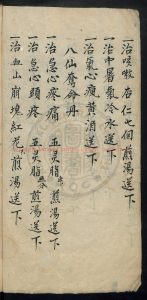 一治咳嗽杏仁七個煎湯送下
一治中暑氣冷水送下
一治氣心痛黄酒送下
八仙奪命丹
一治急心疼痛五灵脂煎湯送下
一治急心頭疼五灵脂煎湯送下
一治血山崩塊紅花煎湯送下